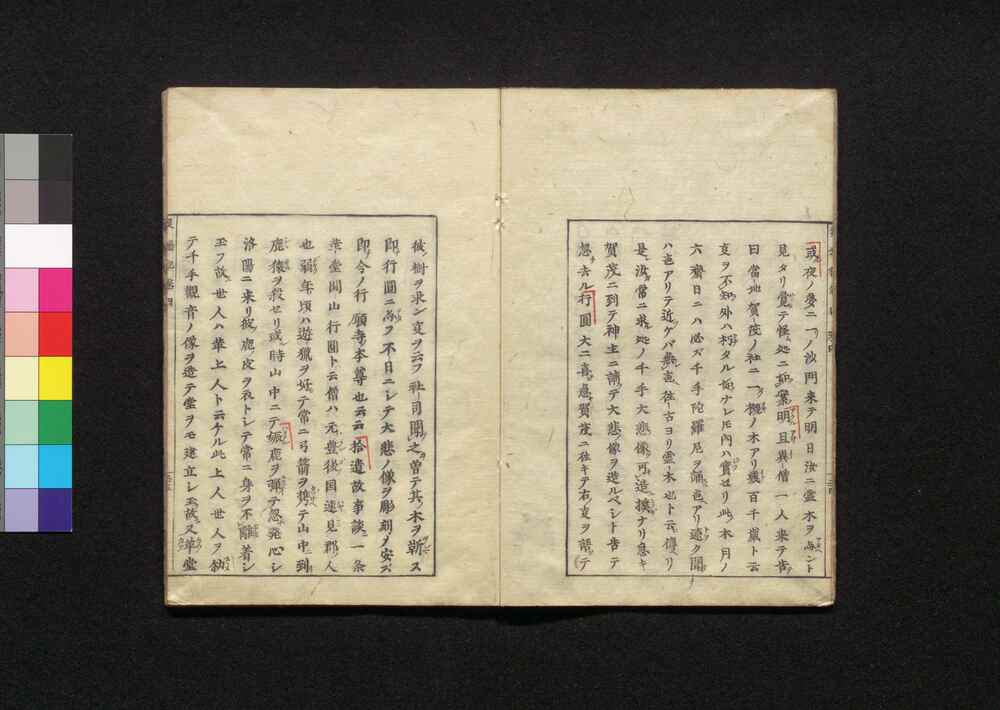 或夜ノ夢ニ一ノ沙門来テ明日汝ニ霊木ヲ与ント
見タリ覚テ怪処ニ如案明旦異僧一人来テ告
曰當地賀茂ノ社ニ一ノ槻ノ木アリ幾百千歳ト云
変ヲ不知外ハ朽タル如ナレ𪜈内ハ實セリ此木月ノ
六齋日ニハ必ズ千手陀羅尼ヲ誦声アリ遠ク聞バ
ハ声アリテ近ゲバ無声往古ヨリ霊木也ト云傳ヘリ
是汝常ニ求処ノ千手大悲像可造撲ナリ急キ
賀茂ニ到テ神主ニ請テ大悲ノ像ヲ造ルベシト告テ
忽去ル行圓大ニ喜急賀茂ニ往キテ右ノ変ヲ語テ
彼ノ樹ヲ求ン変ヲ云フ社司聞之曽テ其木ヲ斬ス
即行圓ニ与フ不日ニシテ大悲ノ像ヲ彫刻ノ安ズ
即今ノ行願寺ノ本尊也云云拾遺故事談一条
革堂開山行圓ト云僧ハ元豊後国速見郡人
也弱年頃ハ遊獵ヲ好テ常ニ弓箭ヲ携テ山中ニ到
鹿猿ヲ殺セリ或時山中ニテ娠鹿ヲ弾テ忽発心シ
洛陽ニ来リ彼鹿ノ皮ヲ衣トシテ常ニ身ヲ不離着シ
玉フ故世人ハ革上人ト云ケル此上人世人ヲ勧
テ千手觀音ノ像ヲ造テ堂ヲモ建立シ玉故又革堂